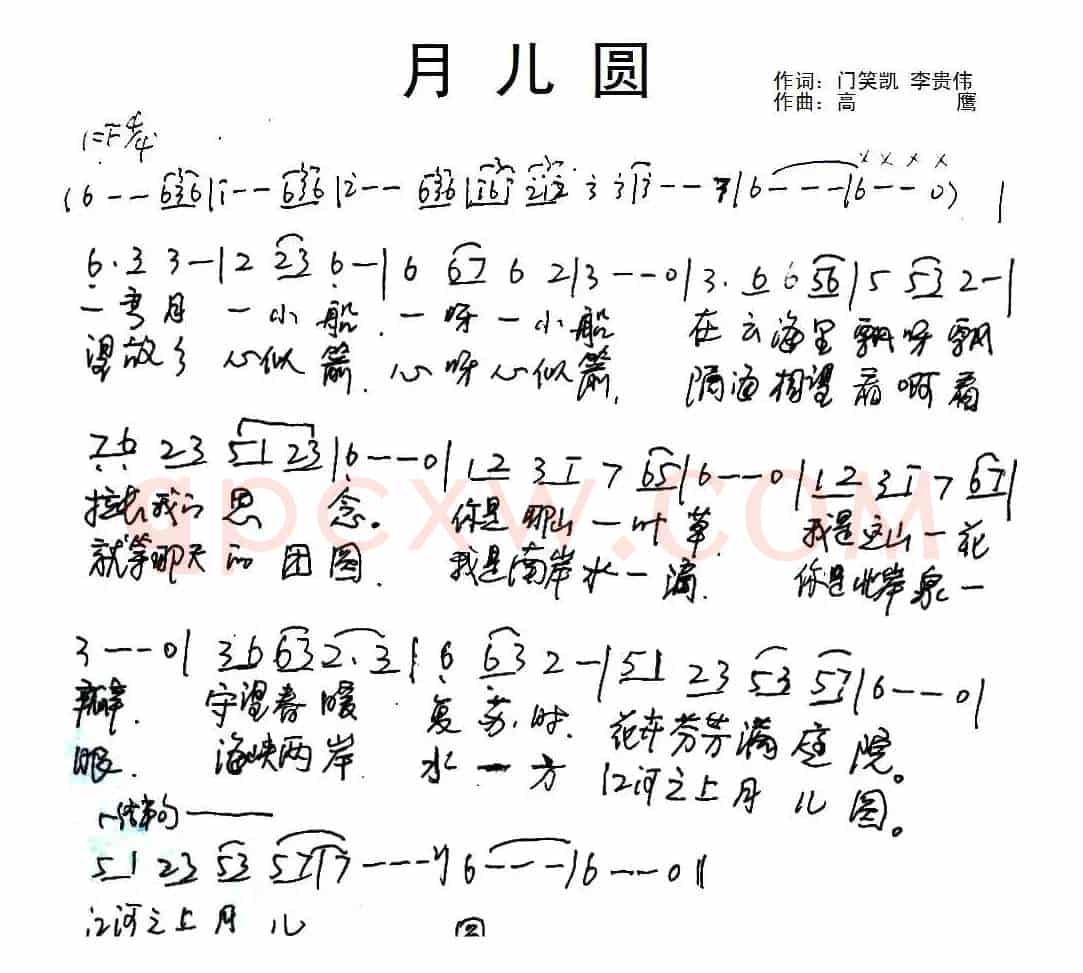 月儿圆
作词：门笑凯 李贵伟
作曲：高 鹰
1=F 4/4
(6 - - 636 | 1 - - 636 | 2 - - 636 | 161 212 3 3 | 3 - - - | 6 - - - | 6 - - 0)
6. 3 3 - | 2 23 6 - | 6 67 6 2 | 3 - - - 0 | 3. 6 6 56 | 5 53 2 - |
一弯月 一小船，一呀一小船 在云海里飘呀飘
望故乡 心似箭，心呀心似箭， 隔海相望看啊看
76 23 51 23 | 6 - - - 0 | 12 31 7 65 | 6 - - - 0 | 12 31 7 67 |
拉长我的思念。 你是那山一叶草， 我是这山一花
就等那天的团圆． 我是南岸水一滴． 你是北岸泉一
3 - - - 0 | 36 63 2. 3 | 6 63 2 - | 51 23 53 57 | 6 - - - 0 |
瓣． 守望春暖 复苏时． 花卉芬芳满庭院。
眼． 海峡两岸 水一方 江河之上月儿圆。
结束句
51 23 53 57 | 7 - - - | 6 - - - | 6 - - - 0 ||
江河之上月儿 圆
qpcxw.com